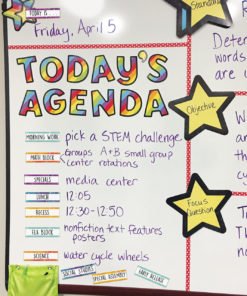 TODAY IS
Friday, April 5
TODAY'S
AGENDA
MORNING WORK pick a STEM challenge
MATH BLOCK Groups A+B small group
center rotations
SPECIALS media center
LUNCH 12:05
RECESS 12:30-12:50
ELA BLOCK nonfiction text features
posters
SCIENCE water cycle wheels
SOCIAL STUDIES
SPECIAL ASSEMBLY
EARLY RELEASE
Standard
Deter
words
are u
Objective
Focus
Question